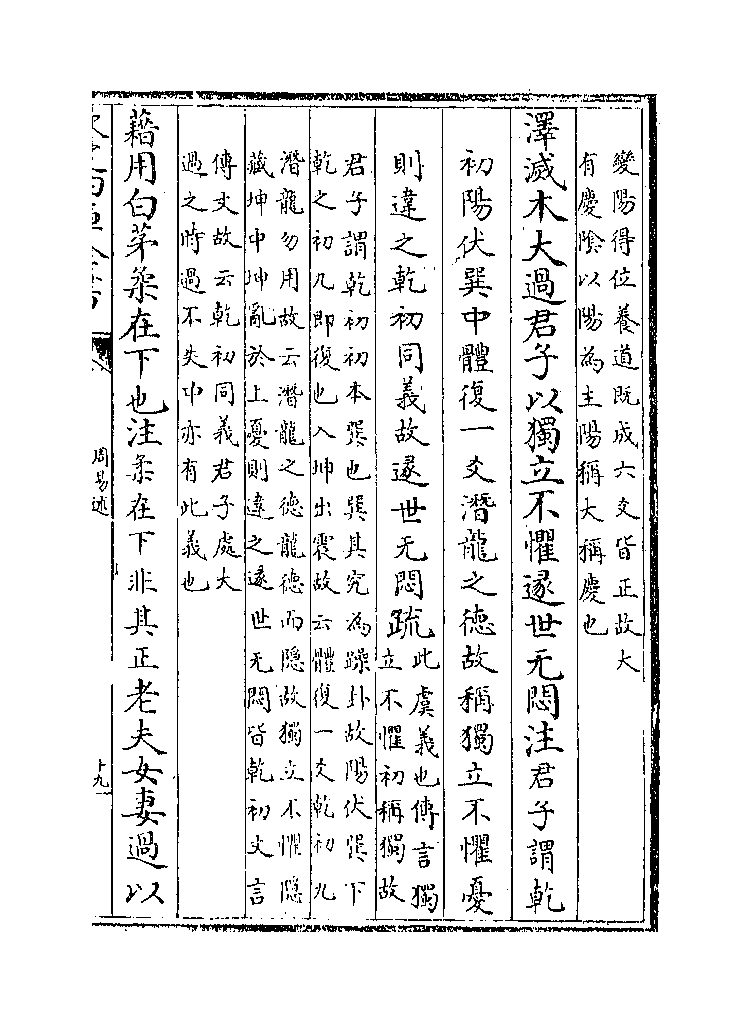 變陽得位養道既成六爻皆正故大
有慶隂以陽為主陽稱大稱慶也
澤滅木大過君子以獨立不懼遂世无悶注君子謂乾
初陽伏巽中體復一爻潛龍之德故稱獨立不懼憂
則違之乾初同義故遯世无悶疏此虞義也傳言獨
立不懼初稱獨故
君子謂乾初初本巽也巽其究為躁卦故陽伏巽下
乾之初九即復也入坤出震故云體復一爻乾初九
潛龍勿用故云潛龍之德龍德而隱故獨立不懼隱
藏坤中坤亂於上憂則違之遂世无悶皆乾初文言
傳文故云乾初同義君子處大
過之時過不失中亦有此義也
藉用白茅柔在下也注柔在下非其正老夫女妻過以
周易述
十九